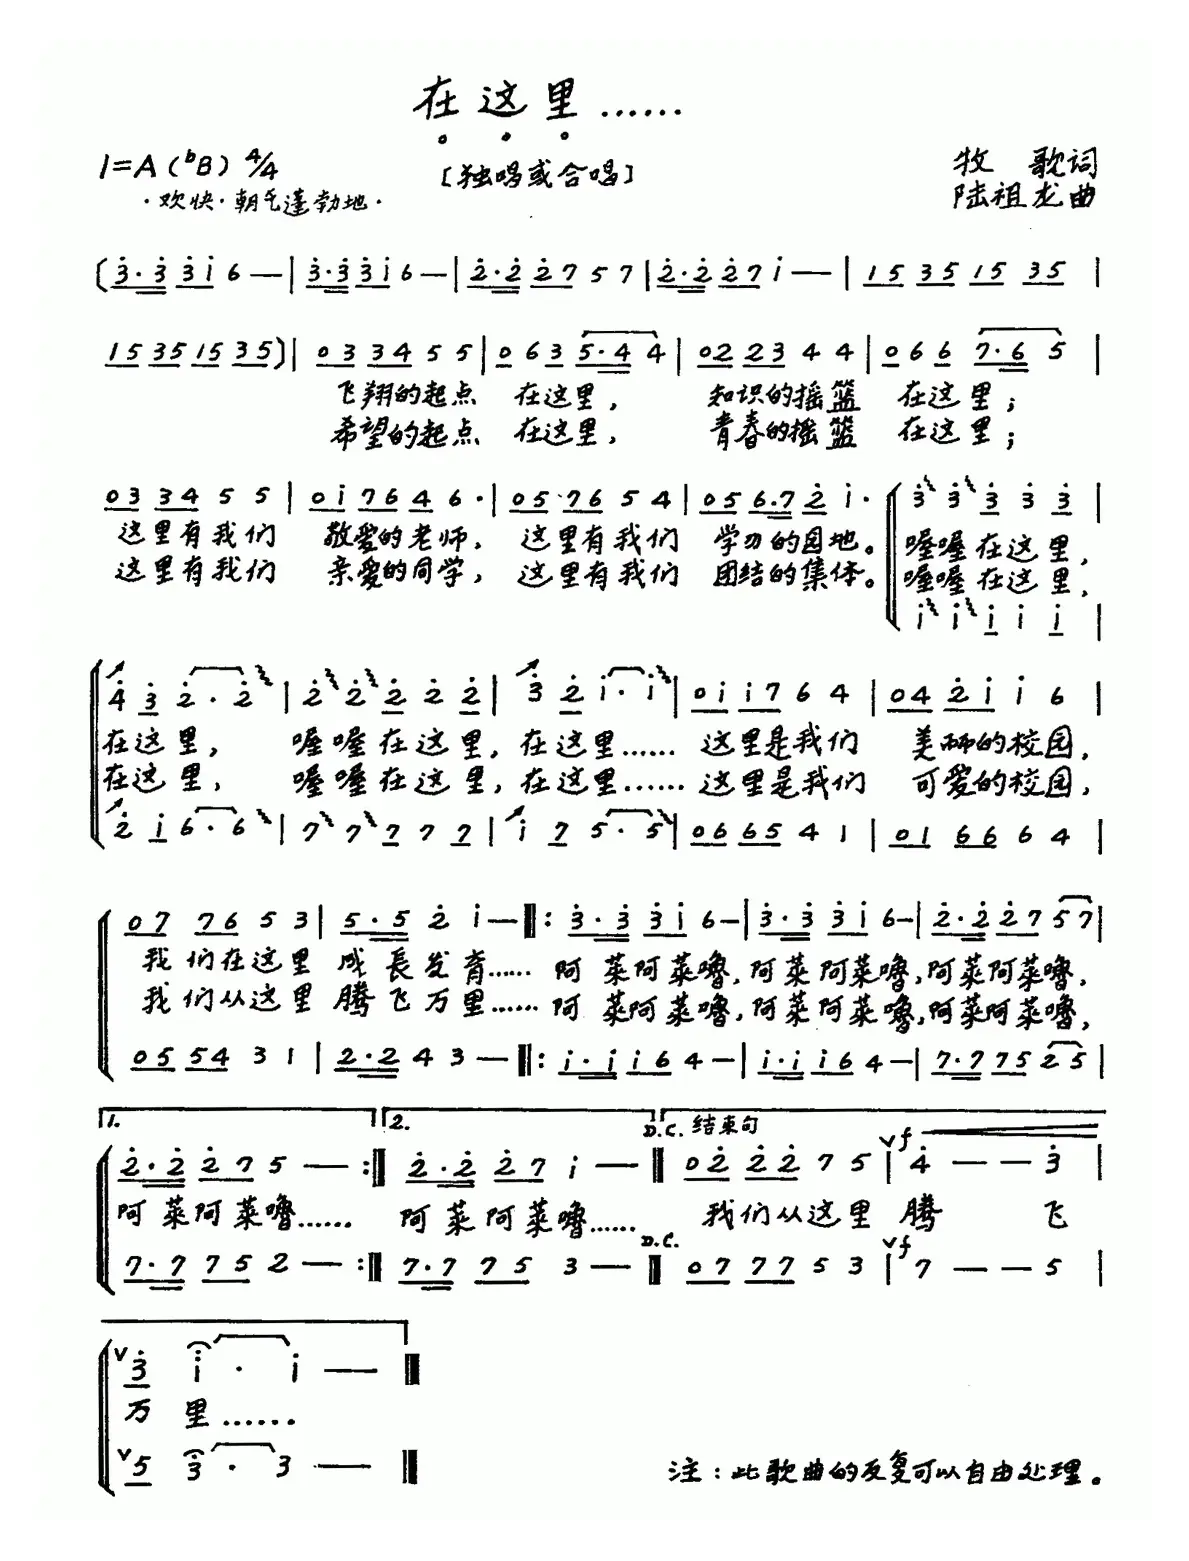 在这里……
1=A(ᵇB) 4/4
[独唱或合唱]
牧 歌词
·欢快·朝气蓬勃地·
陆祖龙曲
(3̇·3̇ 3̇ 1̇ 6 — | 3̇·3̇ 3̇ 1̇ 6 — | 2̇·2̇ 2̇ 7 5 7 | 2̇·2̇ 2̇ 7 1̇ — | 1 5 3 5 1 5 3 5 |
1 5 3 5 1 5 3 5) | 0 3 3 4 5 5 | 0 6 3 5·4 4 | 0 2 2 3 4 4 | 0 6 6 7·6 5 |
飞翔的起点 在这里， 知识的摇篮 在这里；
希望的起点 在这里， 青春的摇篮 在这里；
0 3 3 4 5 5 | 0 1̇ 7 6 4 6· | 0 5 7 6 5 4 | 0 5 6·7 2̇ 1̇· | 3̇ 3̇ 3̇ 3̇ 3̇ |
这里有我们 敬爱的老师， 这里有我们 学习的园地。 喔喔在这里，
这里有我们 亲爱的同学， 这里有我们 团结的集体。 喔喔在这里，
1̇ 1̇ 1̇ 1̇ 1̇ |
4̇ 3̇ 2̇·2̇ | 2̇ 2̇ 2̇ 2̇ 2̇ | 3̇ 2̇ 1̇·1̇ | 0 1̇ 1̇ 7 6 4 | 0 4 2̇ 1̇ 1̇ 6 |
在这里， 喔喔在这里，在这里…… 这里是我们 美丽的校园，
在这里， 喔喔在这里，在这里…… 这里是我们 可爱的校园，
2̇ 1̇ 6·6 | 7 7 7 7 7 | 1̇ 7 5·5 | 0 6 6 5 4 1 | 0 1 6 6 6 4 |
0 7 7 6 5 3 | 5·5 2̇ 1̇ — ‖: 3̇·3̇ 3̇ 1̇ 6 — | 3̇·3̇ 3̇ 1̇ 6 — | 2̇·2̇ 2̇ 7 5 7 |
我们在这里 成長发育…… 阿莱阿莱噜，阿莱阿莱噜，阿莱阿莱噜，
我们从这里 腾飞万里…… 阿莱阿莱噜，阿莱阿莱噜，阿莱阿莱噜，
0 5 5 4 3 1 | 2·2 4 3 — ‖: 1̇·1̇ 1̇ 6 4 — | 1̇·1̇ 1̇ 6 4 — | 7·7 7 5 2 5 |
1. 2. D.C. 结束句
2̇·2̇ 2̇ 7 5 — :‖ 2̇·2̇ 2̇ 7 1̇ — ‖ 0 2̇ 2̇ 2̇ 7 5 | ∨f 4̇ — — 3̇ |
阿莱阿莱噜…… 阿莱阿莱噜…… 我们从这里 腾 飞
D.C.
7·7 7 5 2 — :‖ 7·7 7 5 3 — ‖ 0 7 7 7 5 3 | ∨f 7 — — 5 |
∨3̇ 1̇ · 1̇ — ‖
万 里……
∨5 3 · 3 — ‖
注：此歌曲的反复可以自由处理。